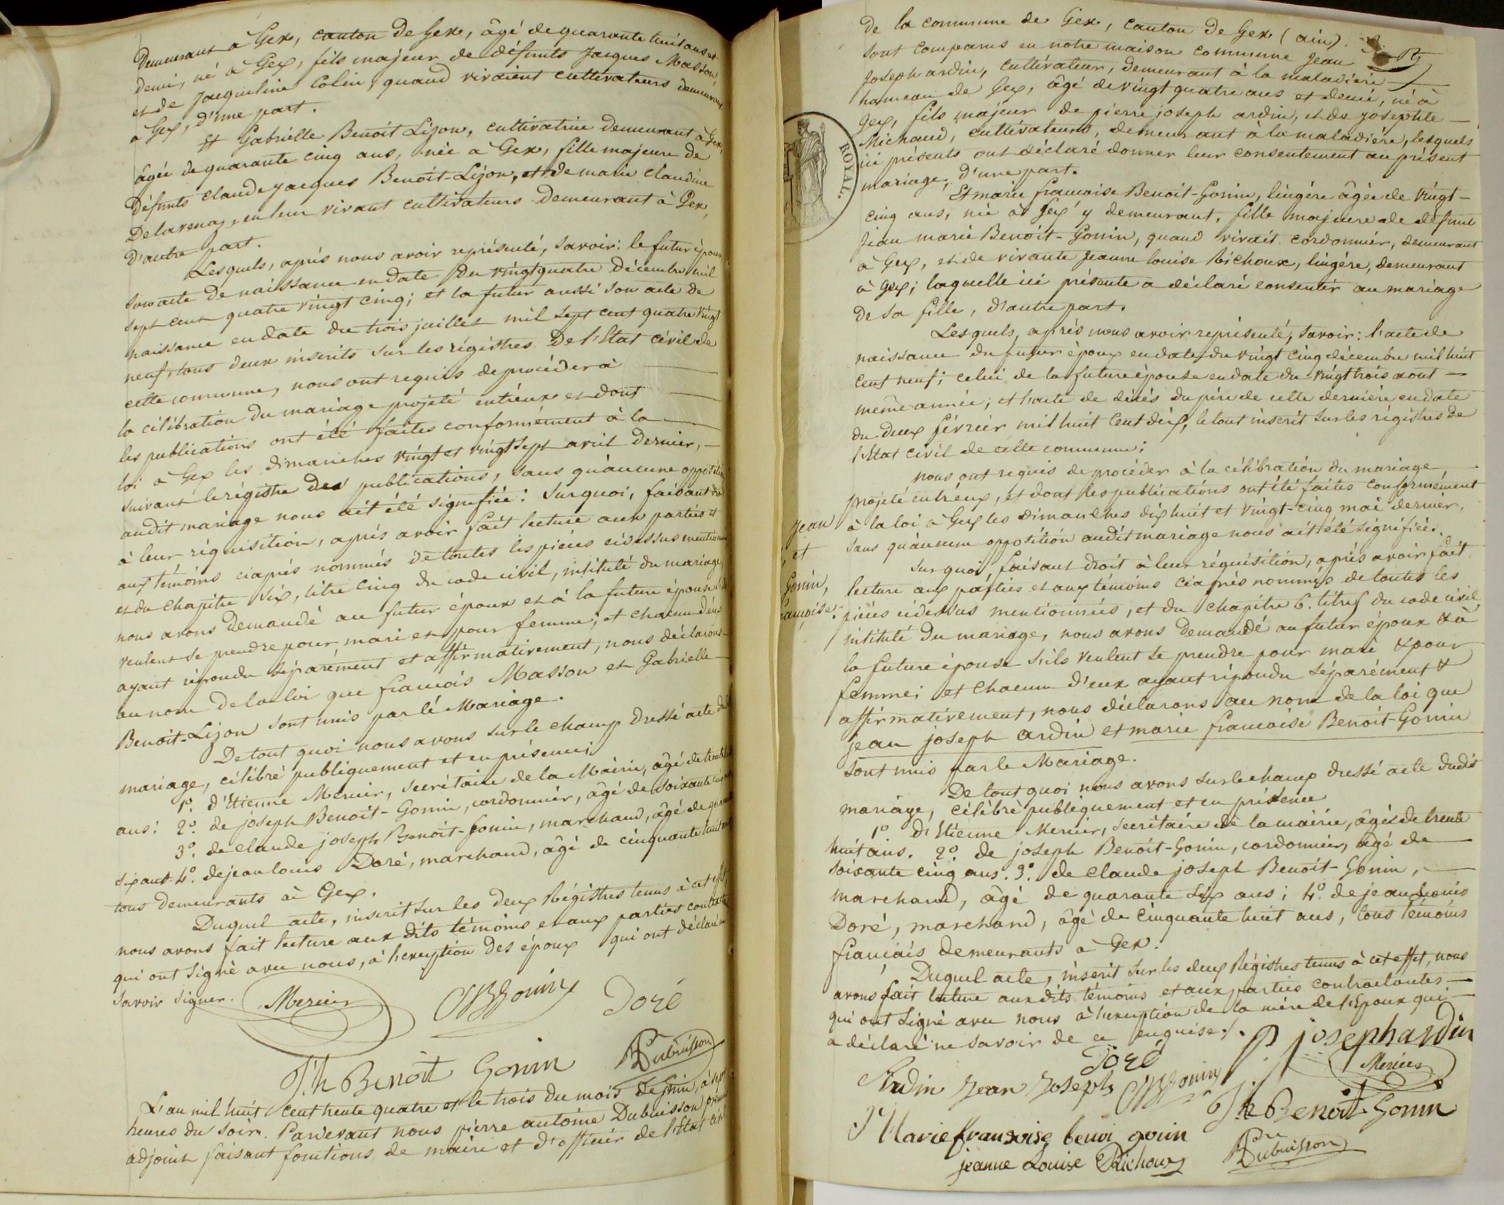 Demeurant à Gex, canton de Gex, âgé de quarante huit ans et
demi, né à Gex, fils majeur de défunts Jacques Masson,
et de Jacqueline Colin, quand vivaient cultivateurs demeurant
à Gex, d'une part.
Et Gabrielle Benoit-Lizon, cultivatrice demeurant à Gex,
âgée de quarante cinq ans, née à Gex, fille majeure de
défunts Claude Jacques Benoit-Lizon, et de marie Claudine
Delavenay, en leur vivant cultivateurs demeurant à Gex,
d'autre part.
Lesquels, après nous avoir représenté, savoir: le futur époux
son acte de naissance en date du vingtquatre décembre mil
sept cent quatre vingt cinq; et la future aussi son acte de
naissance en date du trois juillet mil sept cent quatre vingt
neuf, tous deux inscrits sur les régistres de l'Etat civil de
cette commune, nous ont requis de procéder à
la célébration du mariage projeté entr'eux et dont
les publications ont été faites conformément à la
loi à Gex les dimanches vingt et vingtsept avril dernier,
suivant le régistre des publications, sans qu'aucune opposition
audit mariage nous ait été signifiée: Sur quoi, faisant droit
à leur réquisition, après avoir fait lecture aux parties et
aux témoins ciaprès nommés de toutes les pièces cidessus mentionnées
et du chapitre six, titre cinq du code civil, intitulé du mariage,
nous avons demandé au futur époux et à la future épouse s'ils
veulent se prendre pour mari et pour femme; et chacun d'eux
ayant répondu séparement et affirmativement, nous déclarons
au nom de la loi que françois Masson et Gabrielle
Benoit-Lizon sont unis par le Mariage.
De tout quoi nous avons sur le champ dressé acte dudit
mariage, célébré publiquement et en présence;
1º. d'Etienne Mercier, secrétaire de la Mairie, âgé de trente huit
ans: 2º. de joseph Benoit-Gonin, cordonnier, âgé de soixante cinq
3º. de claude joseph Benoit-Gonin, marchand, âgé de quarante
six ans 4º. de jean louis Doré, marchand, âgé de cinquante huit ans
tous demeurants à Gex.
Duquel acte, inscrit sur les deux Régistres tenus à cet effet,
nous avons fait lecture aux dits témoins et aux parties contractantes
qui ont signé avec nous, à l'exception des époux qui ont déclaré ne
savoir signer.
Mercier CJBGonin Doré
J.h Benoit Gonin Dubuisson
L'an mil huit cent trente quatre et le trois du mois de juin, à sept
heures du soir. Pardevant nous pierre antoine Dubuisson premier
adjoint faisant fonctions de maire et d'officier de l'Etat civil
de la commune de Gex, canton de Gex (ain).
sont comparus en notre maison commune Jean
Joseph ardin, cultivateur, demeurant à la maladière
hameau de Gex, âgé de vingt quatre ans et demi, né à
Gex, fils majeur de pierre joseph ardin, et de josephte
Michaud, cultivateurs, demeurant à la maladière, lesquels
ici présents ont déclaré donner leur consentement au présent
mariage, d'une part.
ROYAL.
Et marie françoise Benoit-Gonin, lingère âgée de vingt-
cinq ans, née à Gex y demeurant, fille majeure de défunt
Jean marie Benoit-Gonin, quand vivait cordonnier, demeurant
à Gex, et de vivante Jeanne louise Richoux, lingère, demeurant
à Gex; laquelle ici présente a déclaré consentir au mariage
de sa fille, d'autre part.
Lesquels, après nous avoir représenté, savoir: l'acte de
naissance du futur époux en date du vingt cinq décembre mil huit
cent neuf; celui de la future épouse en date du vingt trois aout
même année; et l'acte de décès du père de cette dernière en date
du deux février mil huit cent dix, le tout inscrit sur les régistres de
l'Etat civil de cette commune;
nous ont requis de procéder à la célébration du mariage,
projeté entr'eux, et dont les publications ont été faites conformément
à la loi à Gex les dimanches dix huit et vingt-cinq mai dernier,
sans qu'aucune opposition audit mariage nous ait été signifiée.
Jean
et
Gonin,
françoise.
Sur quoi faisant droit à leur réquisition, après avoir fait
lecture aux parties et aux témoins ciaprès nommés de toutes les
pièces cidessus mentionnées, et du chapitre 6. titre 5 du code civil,
intitulé du mariage, nous avons demandé au futur époux & à
la future épouse s'ils veulent se prendre pour mari & pour
femme; et chacun d'eux ayant répondu séparément &
affirmativement, nous déclarons au nom de la loi que
jean joseph ardin et marie françoise Benoit-Gonin
sont unis par le Mariage.
De tout quoi nous avons sur le champ dressé acte dudit
mariage, célébré publiquement et en présence
1º. D'Etienne Mercier, secrétaire de la mairie, âgé de trente
huit ans. 2º. de joseph Benoit-Gonin, cordonnier, âgé de
soixante cinq ans. 3º. de claude joseph Benoit-Gonin,
marchand, âgé de quarante six ans; 4º. de jean Louis
Doré, marchand, âgé de cinquante huit ans, tous témoins
français demeurants à Gex.
Duquel acte, inscrit sur les deux Régistres tenus à cet effet, nous
avons fait lecture aux dits témoins et aux parties contractantes
qui ont signé avec nous à l'exception de la mère de l'Epoux qui
a déclaré ne savoir de ce enquise.
Doré P. joseph ardin
Ardin Jean Joseph CJBGonin Mercier
J.h Benoit Gonin
Marie françoise benoi gonin
jeanne Louise Richoux Dubuisson